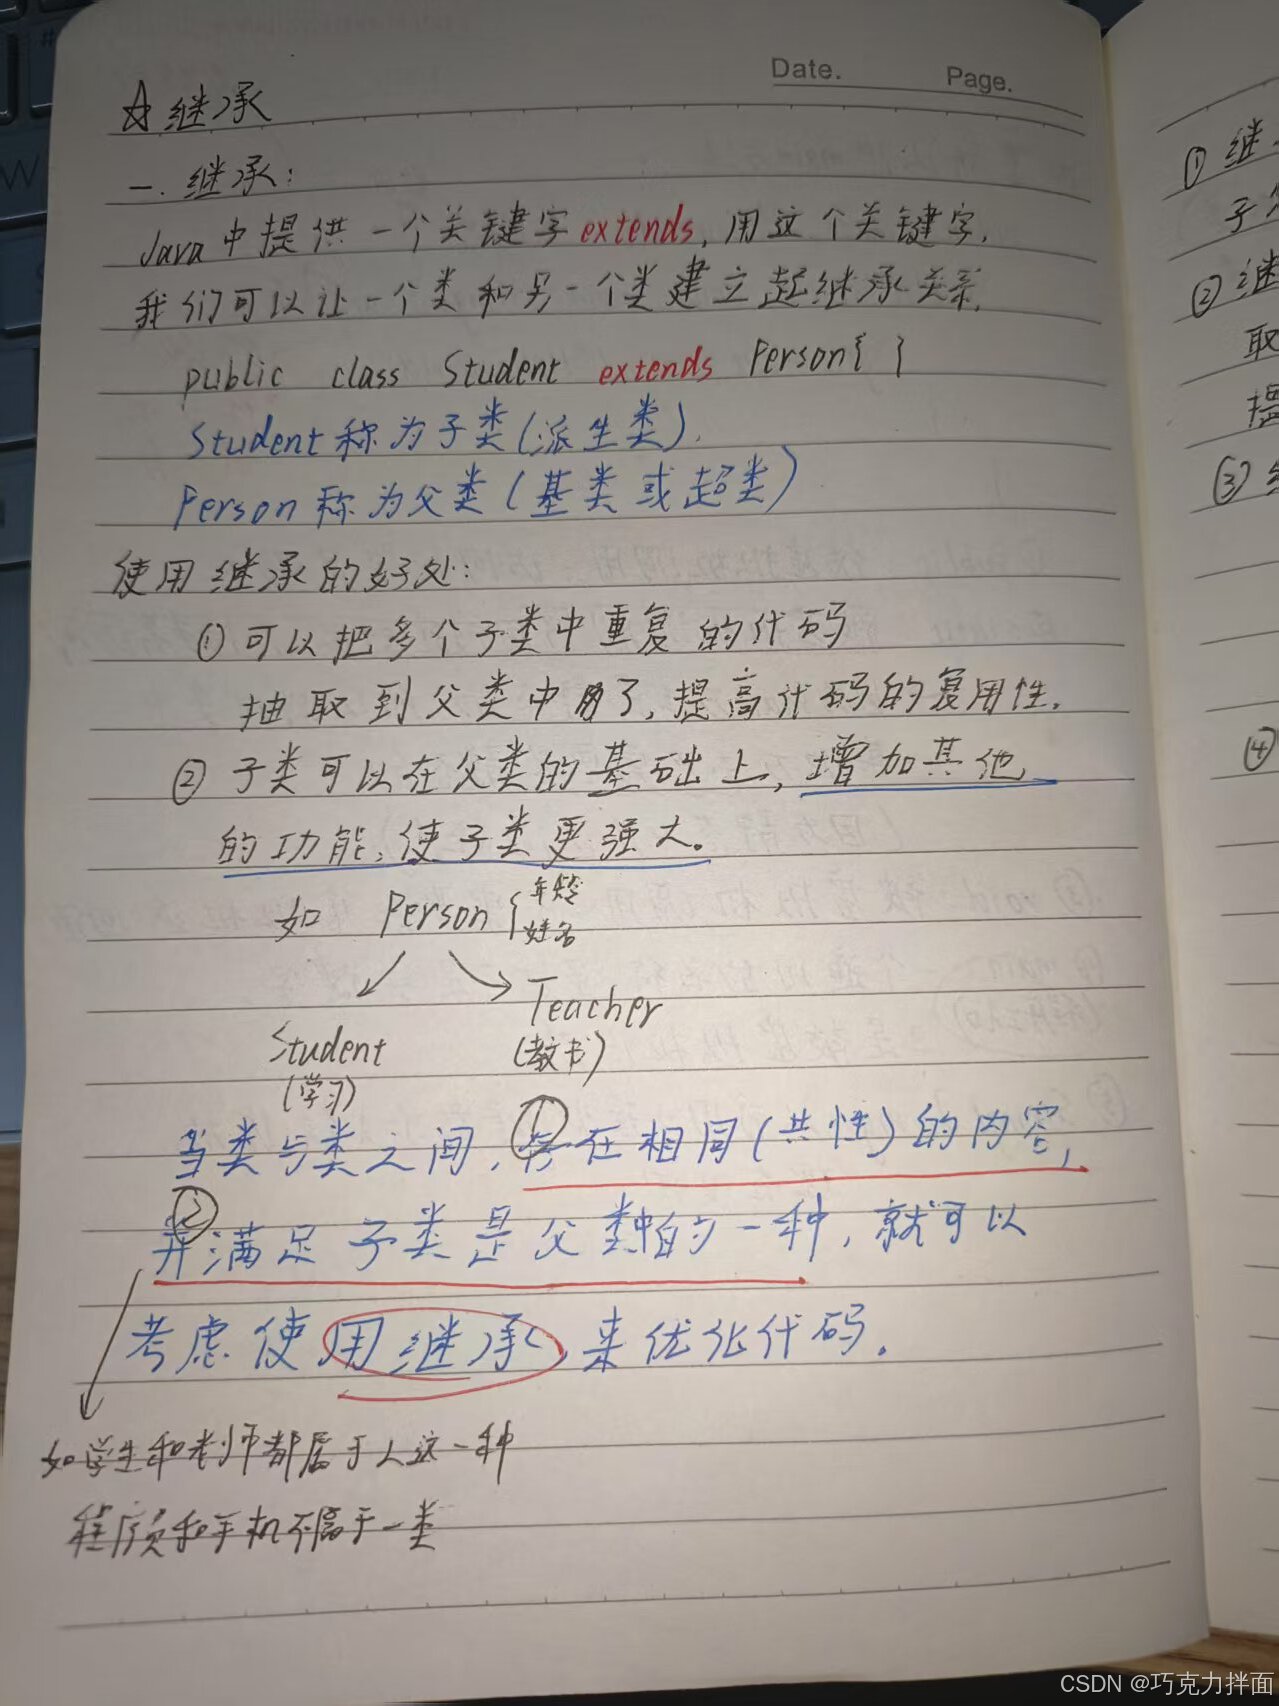 Date. Page.
☆继承
一.继承:
Java中提供一个关键字extends,用这个关键字,
我们可以让一个类和另一个类建立起继承关系.
public class Student extends Person{ }
Student称为子类(派生类).
Person称为父类(基类或超类)
使用继承的好处:
①可以把多个子类中重复的代码
抽取到父类中了,提高代码的复用性.
②子类可以在父类的基础上,增加其他
的功能,使子类更强大。
如 Person{年龄
姓名
Teacher
Student (教书)
(学习)
①
当类与类之间,存在相同(共性)的内容,
②
并满足子类是父类中的一种,就可以
考虑使用继承,来优化代码.
如学生和老师都属于人这一种
程序员和手机不属于一类
①继
子父
②继
取
提
③
④
CSDN @巧克力拌面